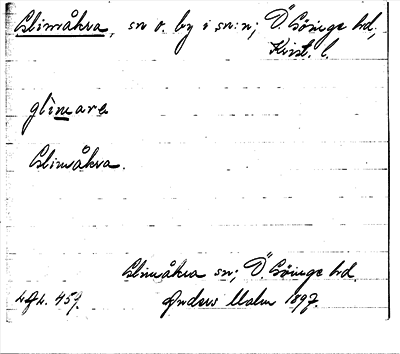 Glimåkra, sn o. by i sn:n; Ö. Göinge hd,
Krist. l.
glimara
Glimåkra.
Glimåkra sn; Ö. Göinge hd.
Anders Malm 1897.